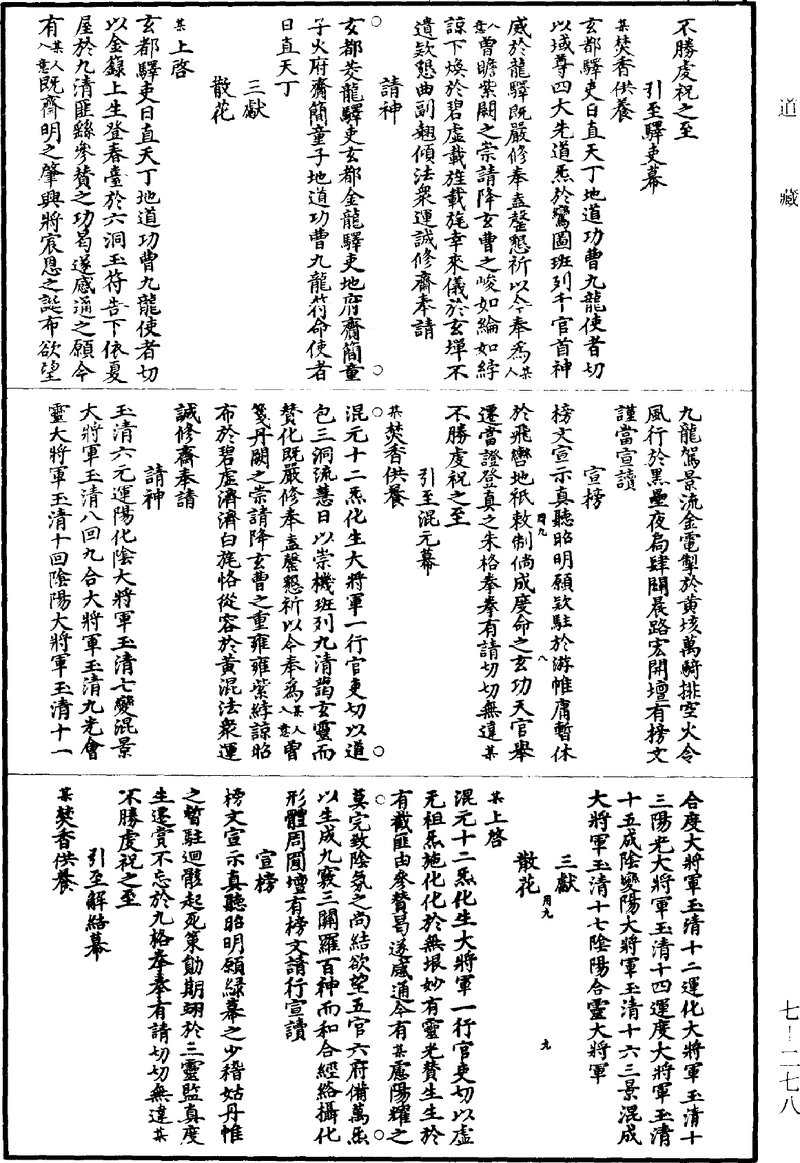 道藏
不勝虔祝之至
引至驛吏幕
某焚香供養
玄都驛吏日直天丁地道功曹九龍使者切
以域尊四大先道炁於鸞圖班列千官首神
威於龍驛既嚴修奉盍罄懇祈以今奉為某人
入意曾瞻紫闕之崇請降玄曹之峻如綸如綍
諒下煥於碧虛載旌載旄幸來儀於玄墠不
遺欽懇曲副翹傾法衆運誠修齋奉請
請神
玄都茭龍驛吏玄都金龍驛吏地府齋簡童
子火府齋簡童子地道功曹九龍符命使者
日直天丁
三獻
散花
某上啓
玄都驛吏日直天丁地道功曹九龍使者切
以金籙上生登春臺於六洞玉符告下依夏
屋於九清匪緣參贊之功曷遂感通之願今
有某人入意既齊明之肇興將宸恩之誕布欲望
九龍駕景流金電掣於黃垓萬騎排空火令
風行於黑壘夜扃肆闢晨路宏開壇有榜文
謹當宣讀
宣榜
榜文宣示真聽昭明願欽駐於游帷庸暫休
於飛轡地祇敕制倘成度命之玄功天官舉
遷當證登真之朱格拳拳有請切切無違某
不勝虔祝之至
引至混元幕
某焚香供養
混元十二炁化生大將軍一行官吏切以道
包三洞流慧日以崇機班列九清藹玄靈而
贊化既嚴修奉盍罄懇祈以今奉為某人入意曾
箋丹闕之崇請降玄曹之重雍雍紫綍諒昭
布於碧虛濟濟白旄恪從容於黃混法衆運
誠修齋奉請
請神
玉清六元運陽化陰大將軍玉清七變混景
大將軍玉清八回九合大將軍玉清九光會
靈大將軍玉清十回陰陽大將軍玉清十一
合度大將軍玉清十二運化大將軍玉清十
三陽光大將軍玉清十四運度大將軍玉清
十五成陰變陽大將軍玉清十六三景混成
大將軍玉清十七陰陽合靈大將軍
三獻
散花
某上啓
混元十二炁化生大將軍一行官吏切以虛
无祖炁施化化於無垠妙有靈光贊生生於
有截匪由參贊曷遂感通今有某慮陽耀之
莫完致陰氛之尚結欲望五官六府備萬炁
以生成九竅三關羅百神而和合經絡攝化
形體周圓壇有榜文請行宣讀
宣榜
榜文宣示真聽昭明願綠幕之少稽姑丹帷
之暫駐迴骸起死策勳期翊於三靈監真度
生遷賞不忘於九格拳拳有請切切無違某
不勝虔祝之至
引至解結幕
某焚香供養
用九 八
用九 九
七-二七八